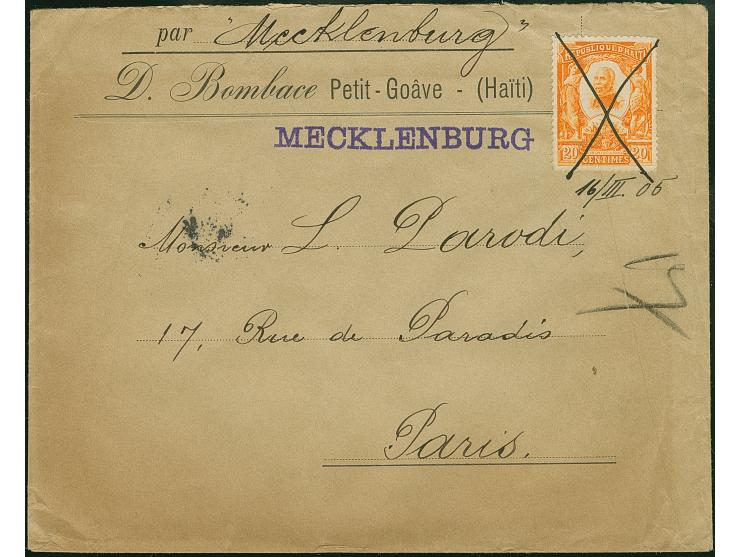 par "Mecklenburg"
D. Bombace Petit-Goâve - (Haïti)
REPUBLIQUE D'HAITI
20 CENTIMES 20
MECKLENBURG
16/III. 05
Monsieur L. Parodi,
17, Rue de Paradis
Paris.